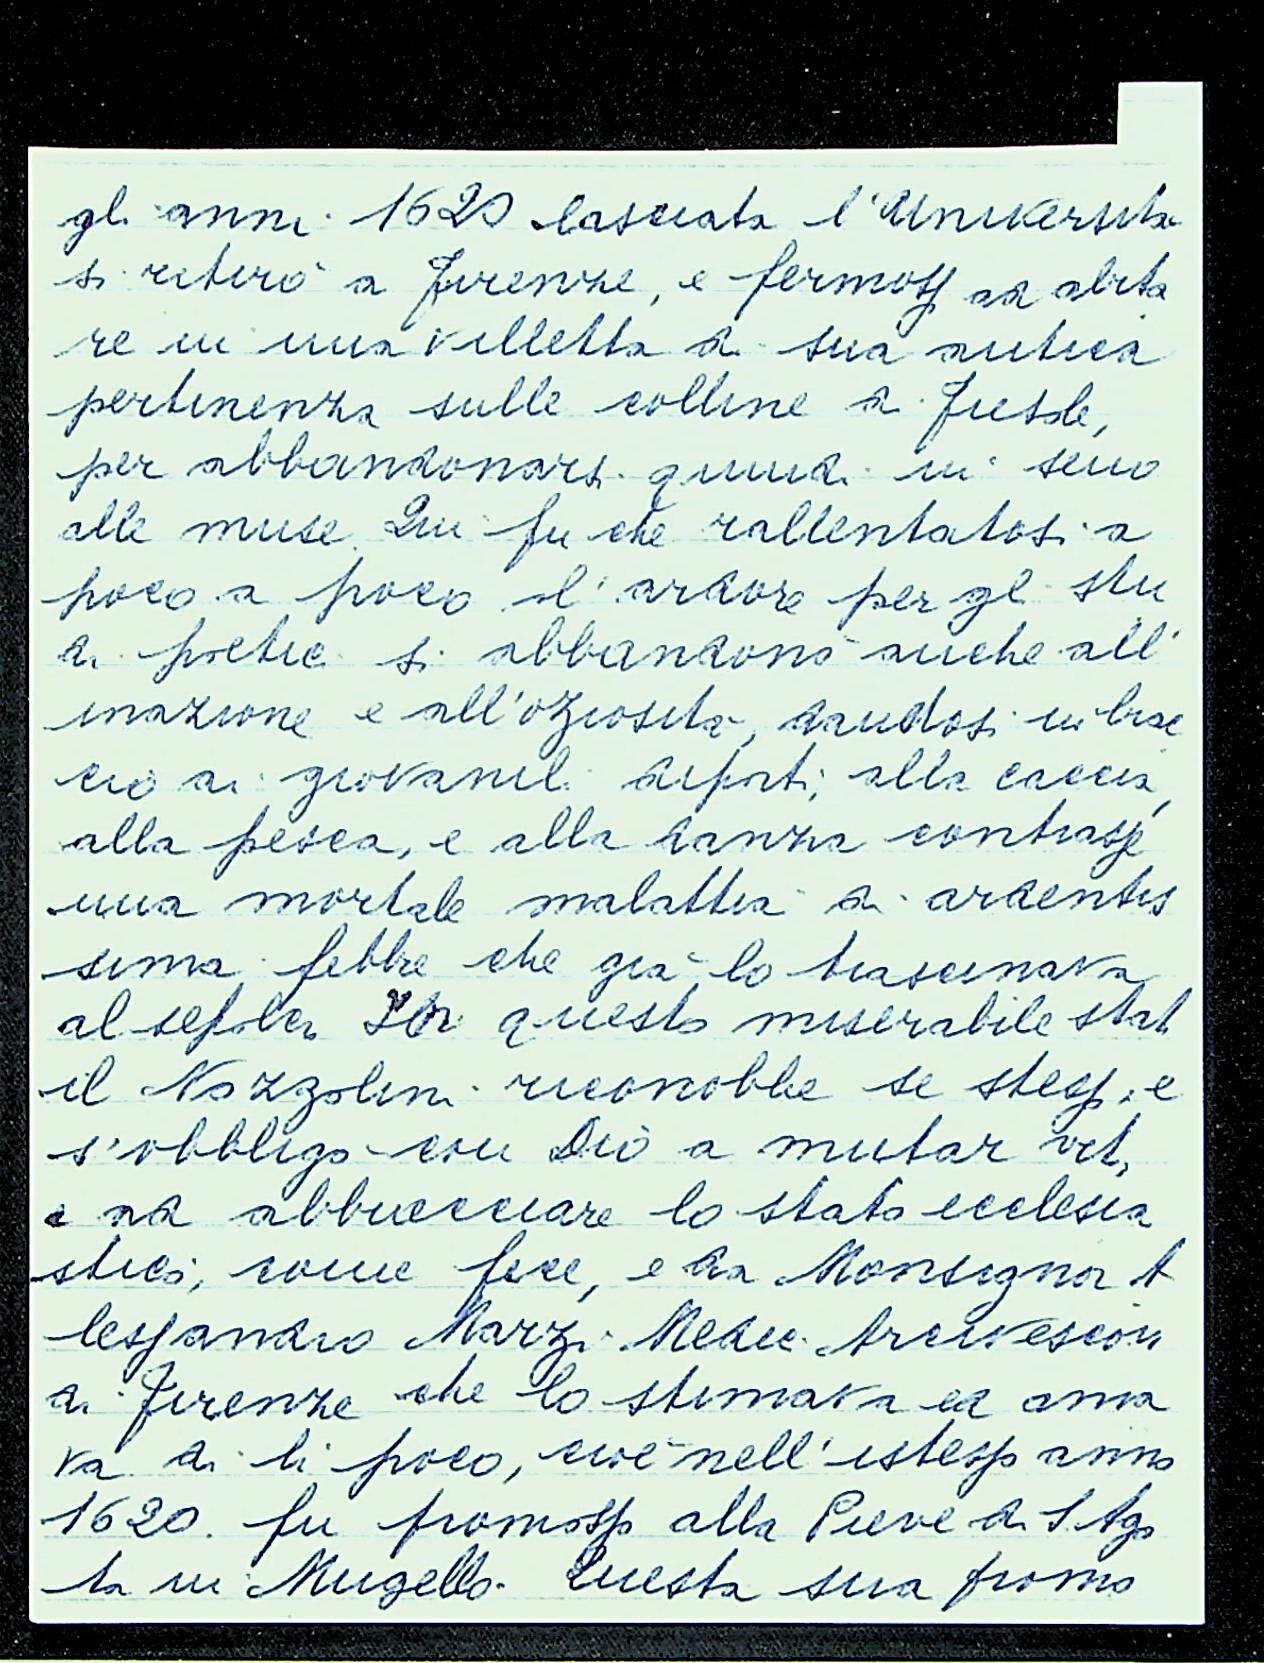 gli anni 1620 lasciata l'Università
si retirò a Firenze, e fermoss ad abita
re in una villetta di sua antica
pertinenza sulle colline di Fiesole,
per abbandonarsi quindi in seno
alle muse. Qui fu che rallentatosi a
poco a poco l'ardore per gl stu
di poetic si abbandonò anche all'
inazione e all'oziosità, dandosi in brac
cio ai giovanili diporti; alla caccia,
alla pesca, e alla danza contrasse
una mortale malattia di ardentis
sima febbre che già lo trascinava
al sepolcr In questo miserabile stat
il Nozzolini riconobbe se stess, e
s'obbligò con Dio a mutar vit,
e ad abbracciare lo stato ecclesia
stico, come fece, e da Monsignor A
lessandro Marzi Medic Arcivescov
di Firenze che lo stimava ed ama
va di li poco, cioè nell'istesso anno
1620. fu promosso alla Pieve di S. Aga
ta in Mugello. Questa sua promo